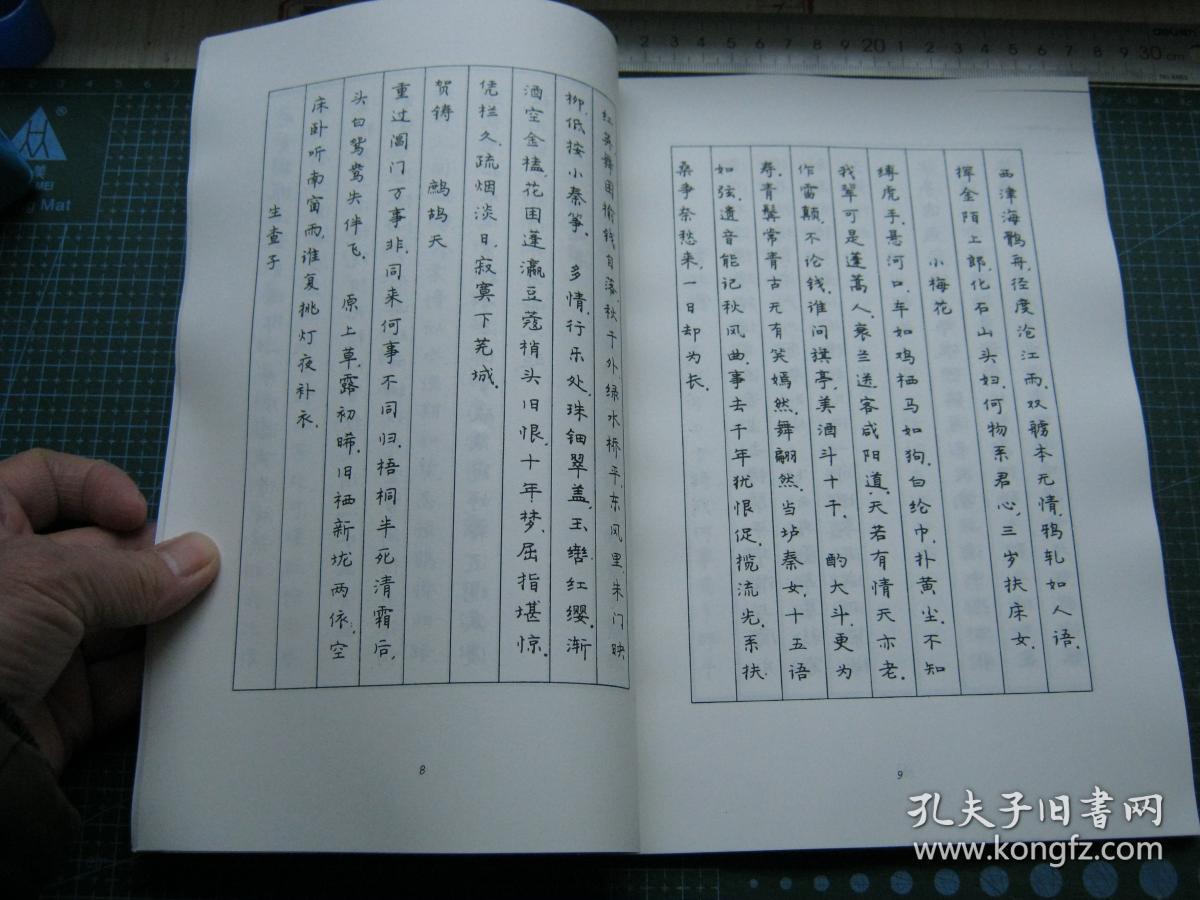 红英.舞困榆钱自落.秋千外.绿水桥平.东风里.朱门映
柳.低按小秦筝. 多情.行乐处.珠钿翠盖.玉辔红缨.渐
酒空金榼.花困蓬瀛.豆蔻梢头旧恨.十年梦.屈指堪惊.
凭栏久.疏烟淡日.寂寞下芜城.
贺铸 鹧鸪天
重过阊门万事非.同来何事不同归.梧桐半死清霜后.
头白鸳鸯失伴飞. 原上草.露初晞.旧栖新垅两依.空
床卧听南窗雨.谁复挑灯夜补衣.
生查子
8
西津海鹘舟.径度沧江雨.双艣本无情.鸦轧如人语.
挥金陌上郎.化石山头妇.何物系君心.三岁扶床女.
小梅花
缚虎手.悬河口.车如鸡栖马如狗.白纶巾.扑黄尘.不知
我辈可是蓬蒿人.衰兰送客咸阳道.天若有情天亦老.
作雷颠.不论钱.谁问旗亭.美酒斗十千. 酌大斗.更为
寿.青鬓常青古无有.笑嫣然.舞翩然.当垆秦女.十五语
如弦.遗音能记秋风曲.事去千年犹恨促.揽流光.系扶
桑.争奈愁来.一日却为长.
9
孔夫子旧书网
www.kongfz.com